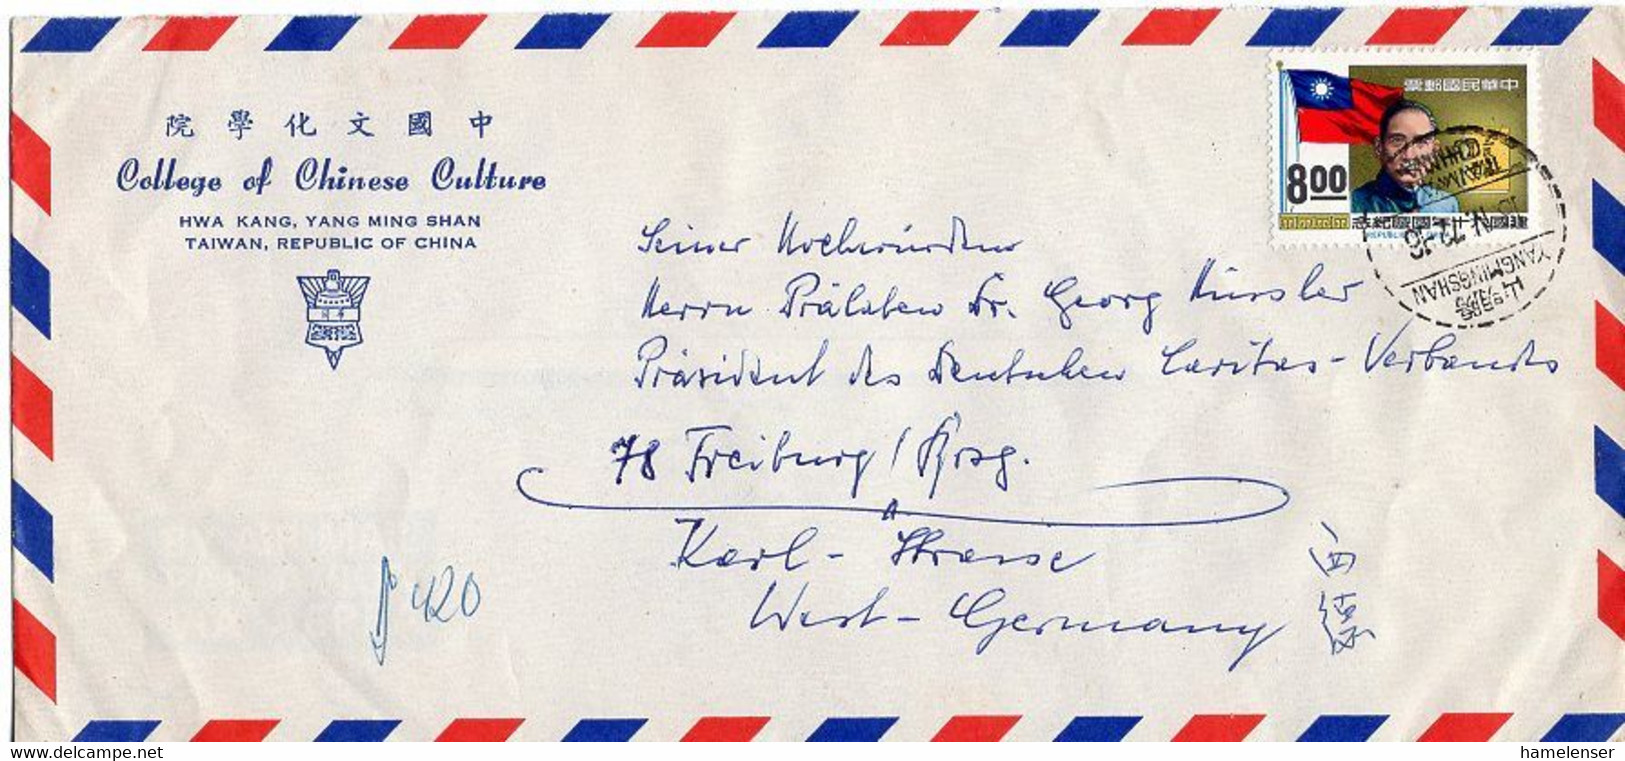 院學化文國中
College of Chinese Culture
HWA KANG, YANG MING SHAN
TAIWAN, REPUBLIC OF CHINA
中華民國郵票
8.00
建國六十年國慶紀念
REPUBLIC OF CHINA
TAIWAN
CHINA
YANGMINGSHAN
陽明山
Seiner Hochwürden
Herrn Prälaten Dr. Georg Hüssler
Präsident des Deutschen Caritas-Verbandes
78 Freiburg / Brsg.
Karl-Strasse
West-Germany
西德
420
www.delcampe.net
hamelenser